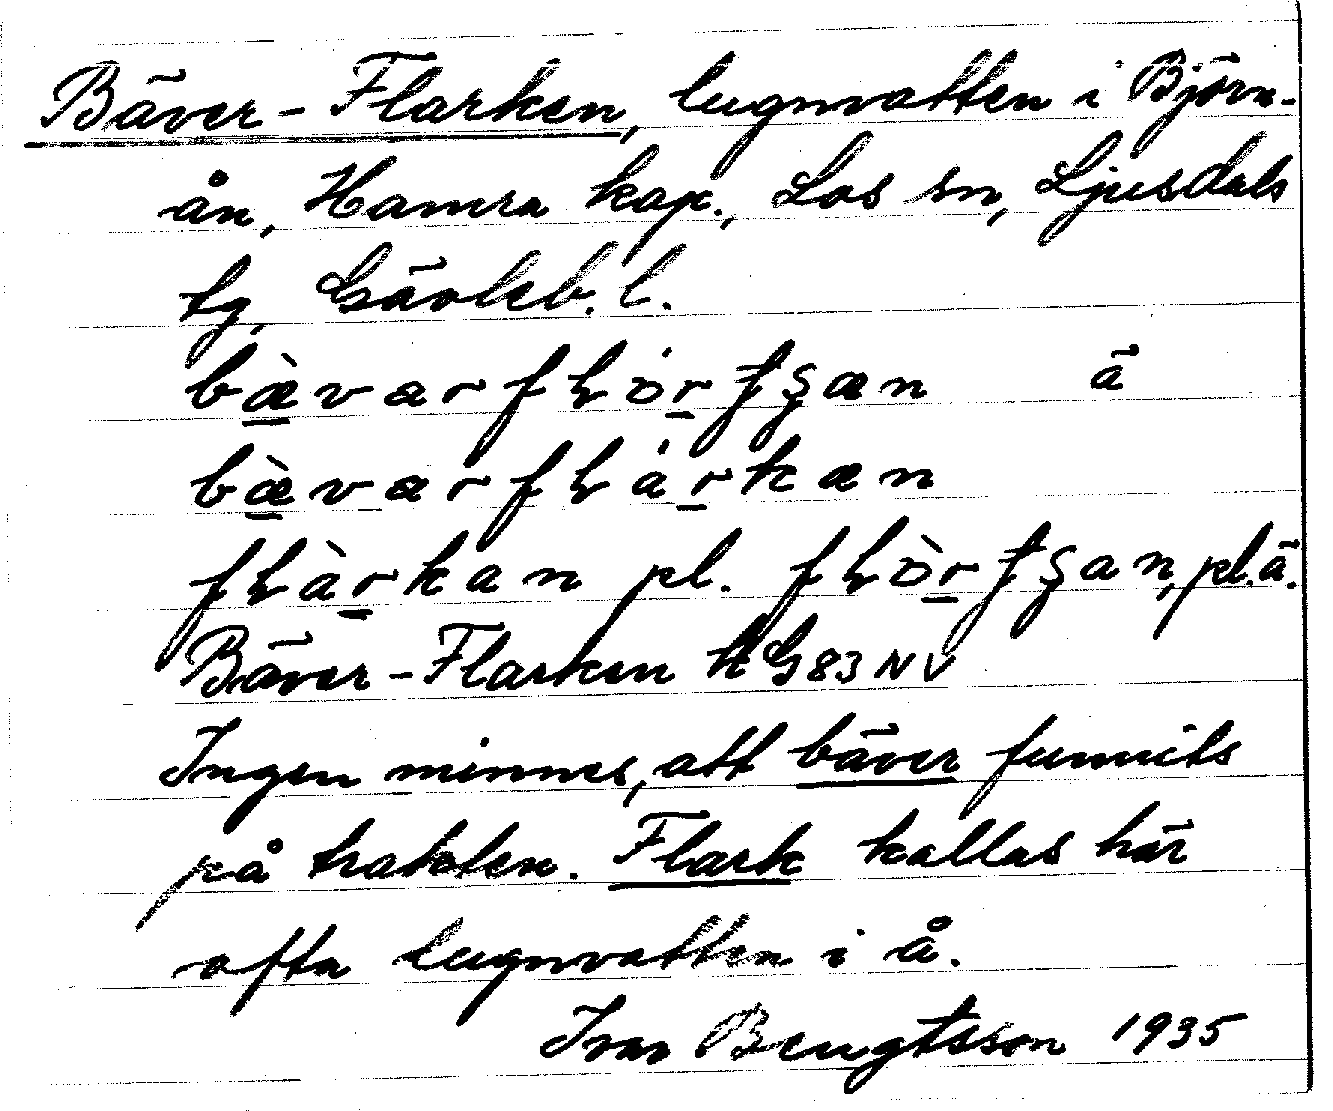 Bäver-Flarken, lugnvatten i Björn-
ån, Hamra kap., Los sn, Ljusdals
tg, Gävleb. l.
ä
pl. pl. ä.
Bäver-Flarken G 83 NV
Ingen minnes, att bäver funnits
på trakten. Flark kallas här
ofta lugnvatten i å.
Ivar Bengtsson 1935